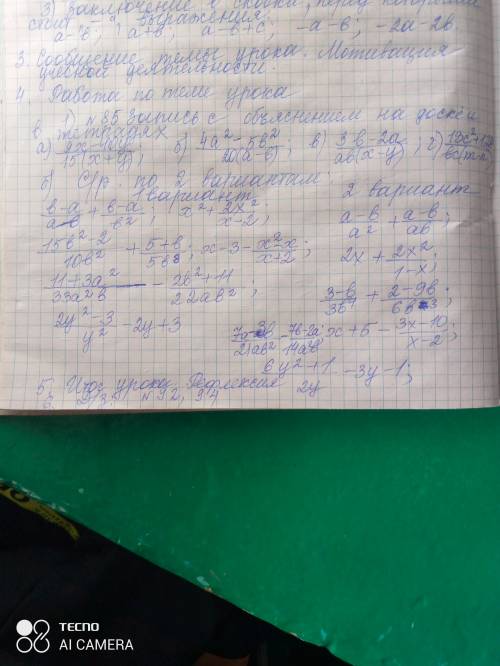 3) Заключение в скобки, перед которыми
стоит "-" выражения;
a-b; a+b; a-b+c; -a-b; -2a-2b.
3. Сообщение темы урока. Мотивация
учебной деятельности.
4. Работа по теме урока
1) №85 запись с объяснением на доске и
в тетрадях
а) /15(x+y); б) (4a²-5b²)/20(a-b); в) (3b-2a)/ab(x-y); г)
б) С/р. по 2 вариантам:
1 вариант 2 вариант
(b-a)/ab + (b-a)/b²; x²+2x²/(x-2); (a-b)/a² + (a-b)/ab
(15b²-2)/10b² + (5+b)/5b; x-3-(x²-x)/(x+2); 2x+2x²/(1-x);
(11+3a²)/33a²b - (2b²+11)/22ab²; (3-b)/3b² + (2-9b)/6b³;
(2y²-3)/y² -2y+3 (7a-3b)/21ab² - (7b-2a)/14a²b; x+5-(3x-10)/(x-2);
(6y²+1)/2y -3y-1;
5. Итог урока. Рефлексия
6. №92, 94
TECNO
AI CAMERA